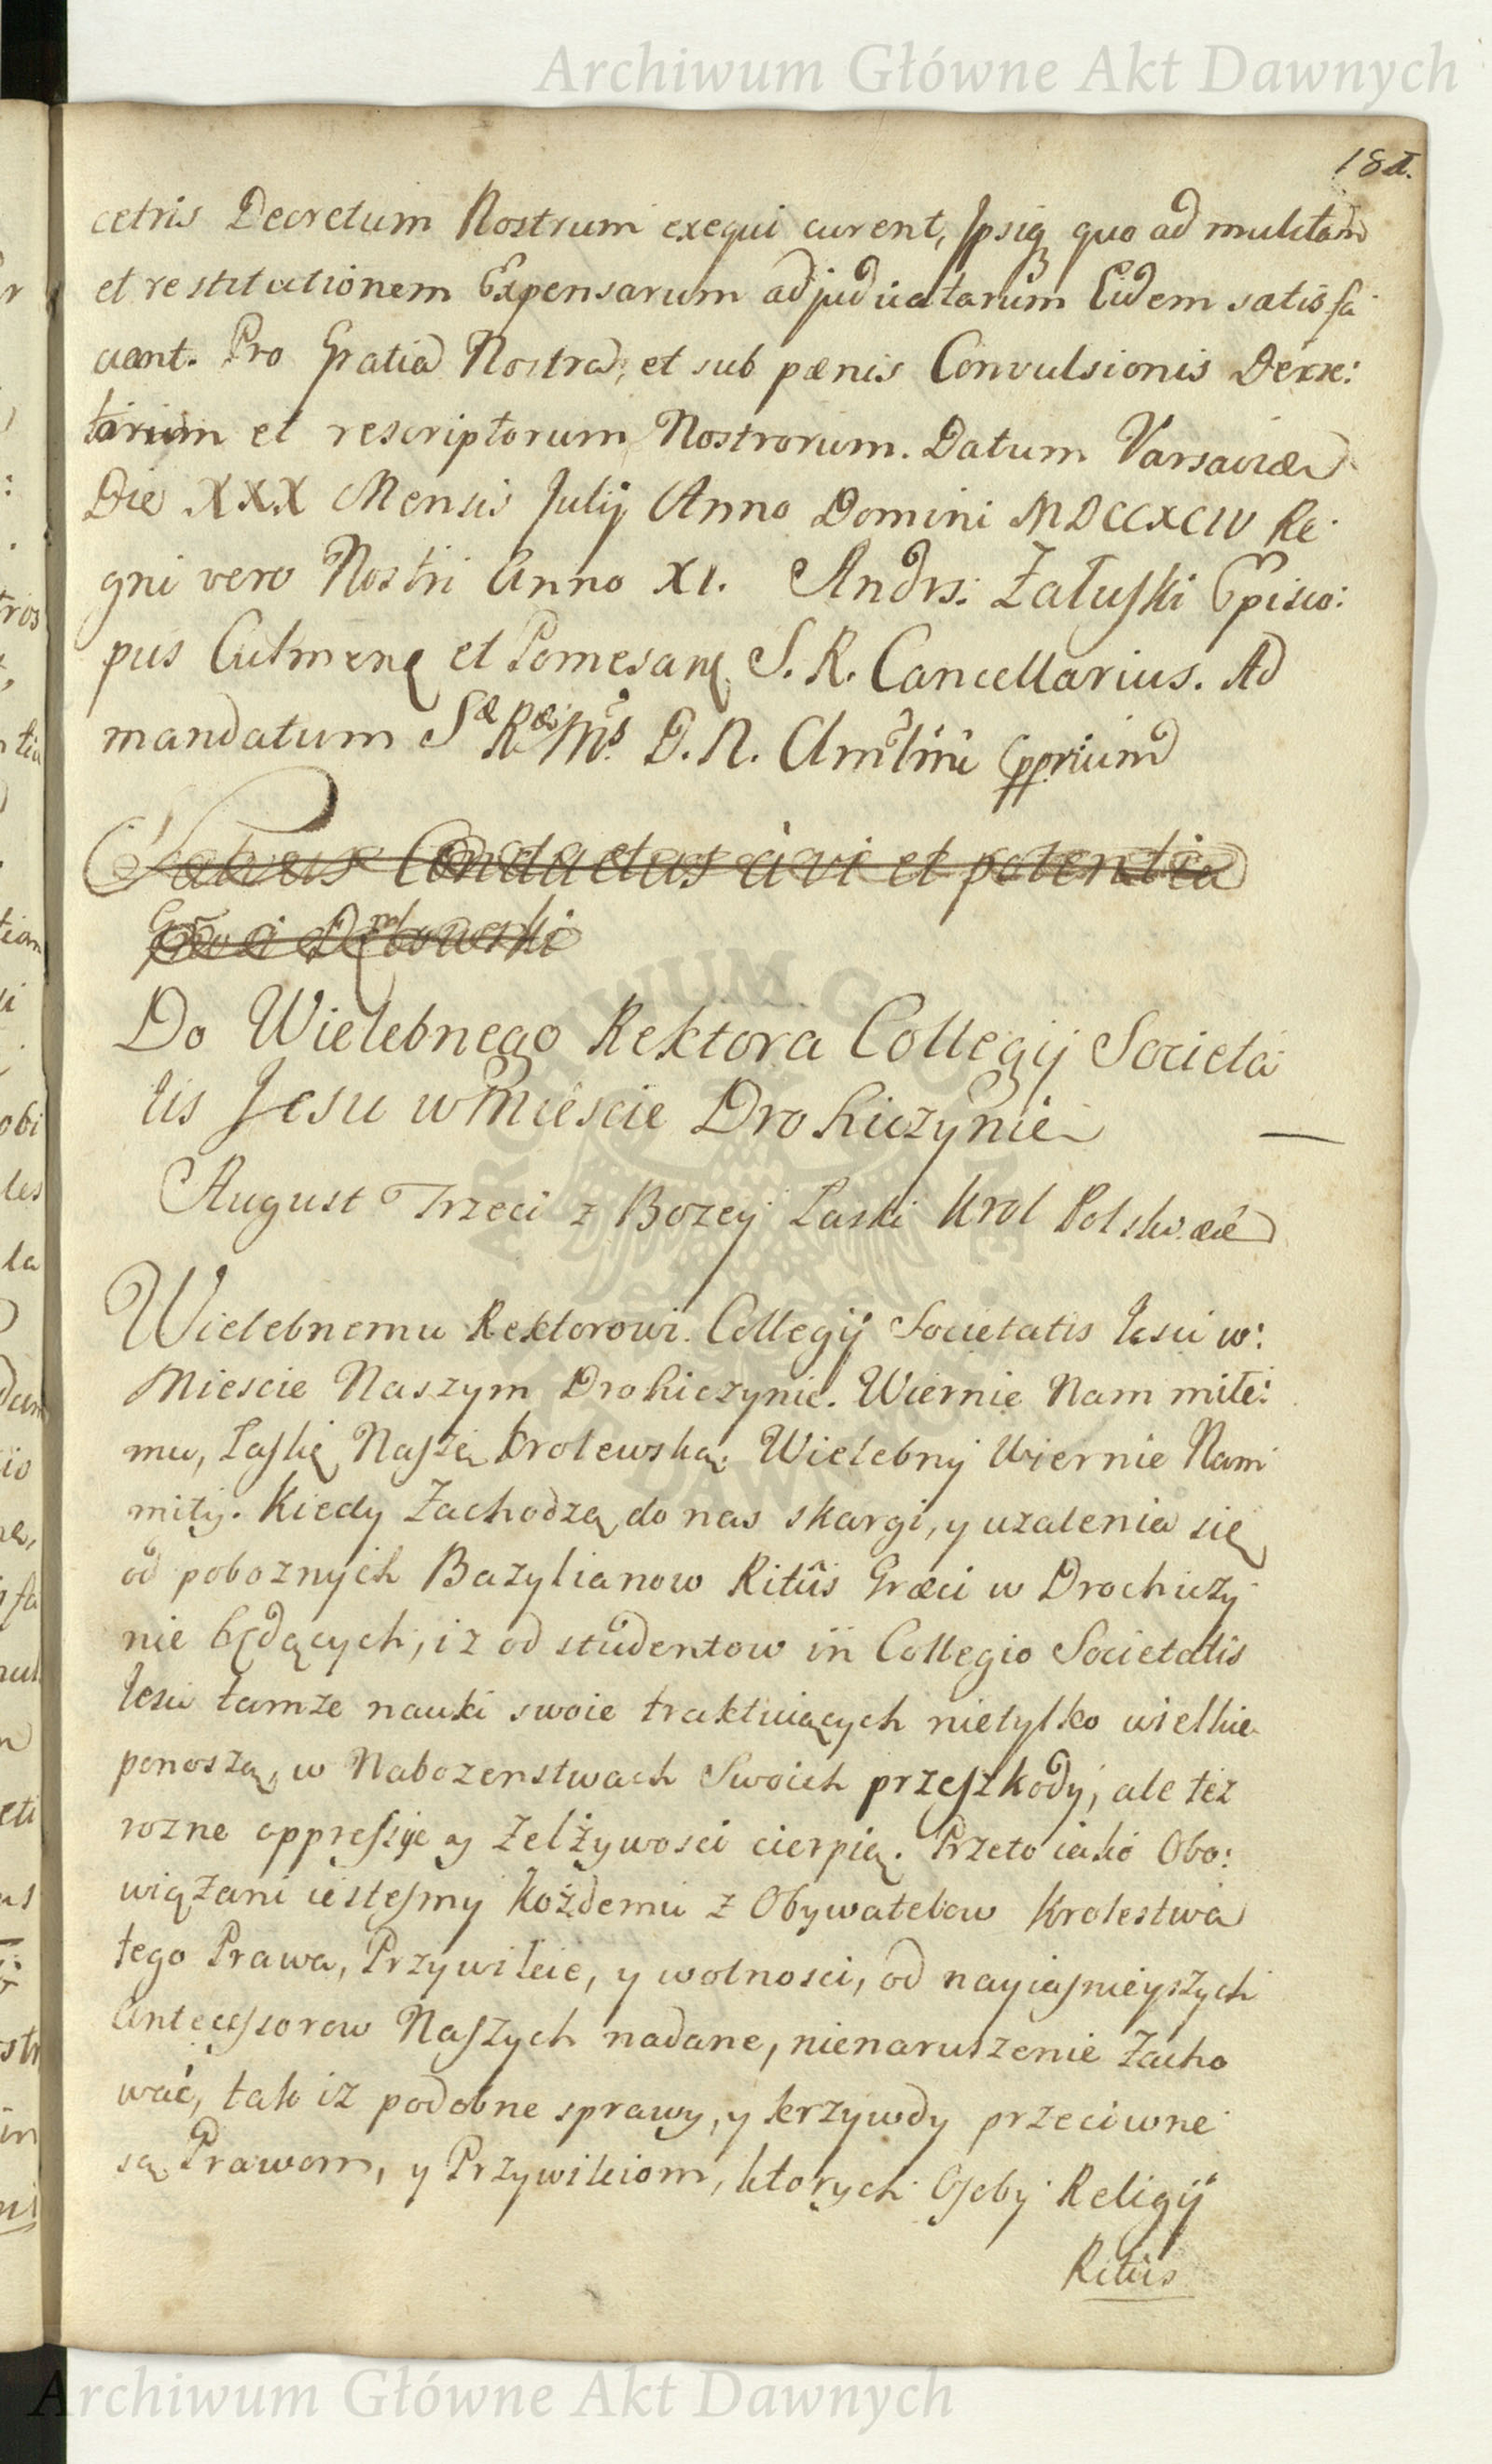 Archiwum Główne Akt Dawnych
184.
cetris Decretum Nostrum exequi curent, Ipsiq quo ad multam
et restitutionem Expensarum adjudicatarum Eidem satisfa
ciant. Pro Gratia Nostra, et sub pænis Convulsionis Decre:
torum et rescriptorum Nostrorum. Datum Varsaviæ
Die XXX Mensis Julij Anno Domini MDCCXCIV Re
gni vero Nostri Anno XI. Andrs: Załuski Episco:
pus Culmenę et Pomesanę S. R. Cancellarius. Ad
mandatum Sæ Ræ Mtis D. N. Clmtini pprium
Salvus Conductus à vi et potentia
Gnoso Dębowski
Do Wielebnego Rektora Collegij Societa
tis Jesu w Miescie Drohiczynie
August Trzeci z Bozey Laski Krol Polski &c
Wielebnemu Rektorowi Collegij Societatis Iesu w:
Miescie Naszym Drohiczynie. Wiernie Nam miłe:
mu, Łaskę Naszą Krolewską. Wielebny Wiernie Nam
miły. Kiedy zachodzą do nas skargi, y uzalenia się
od poboznych Bazylianow Ritûs Græci w Drochiczy
nie będących, iz od studentow in Collegio Societatis
Iesu tamze nauki swoie traktuiących nietylko wielkie
ponoszą, w Nabozenstwach Swoich przeszkody, ale tez
rozne oppressye y zelżywosci cierpią. Przeto iako Obo:
wiązani iestesmy kożdemu z Obywatelow Krolestwa
tego Prawa, Przywileie, y wolnosci, od nayiasnieyszych
Antecessorow Naszych nadane, nienaruszenie zacho
wać, tak iz podobne sprawy, y krzywdy przeciwne
są Prawom, y Przywileiom, ktorych Osoby Religij
Ritûs
Archiwum Główne Akt Dawnych